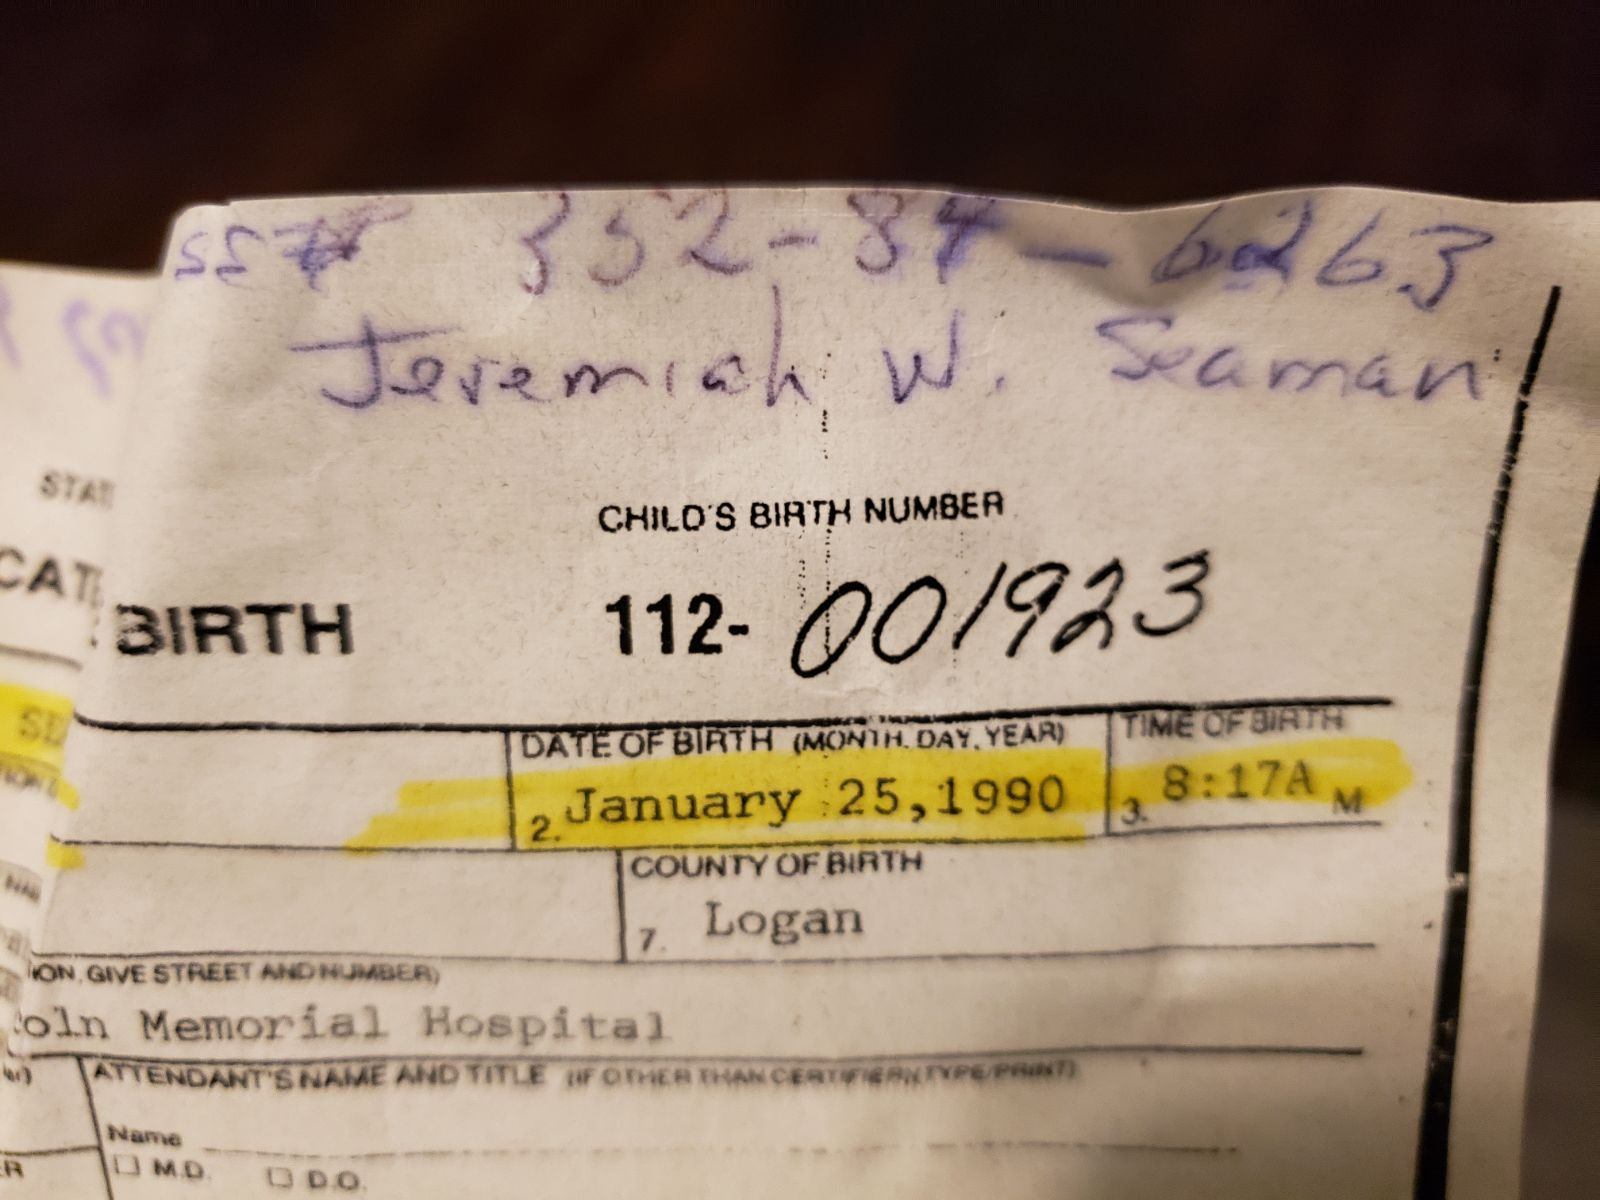 SS# 352-84-6263
Jeremiah W. Seaman
STAT
CHILD'S BIRTH NUMBER
CAT
BIRTH 112-001923
SE
DATE OF BIRTH (MONTH, DAY, YEAR) TIME OF BIRTH
2. January 25,1990 3. 8:17A M
COUNTY OF BIRTH
7. Logan
ION, GIVE STREET AND NUMBER)
oln Memorial Hospital
ATTENDANT'S NAME AND TITLE (IF OTHER THAN CERTIFIER) (TYPE/PRINT)
Name
☐ M.D. ☐ D.O.